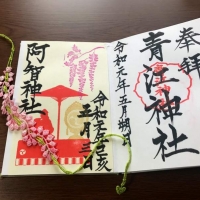 奉拝
青江神社
令和元年五月朔日
令和元年己亥
五月三日
阿智神社